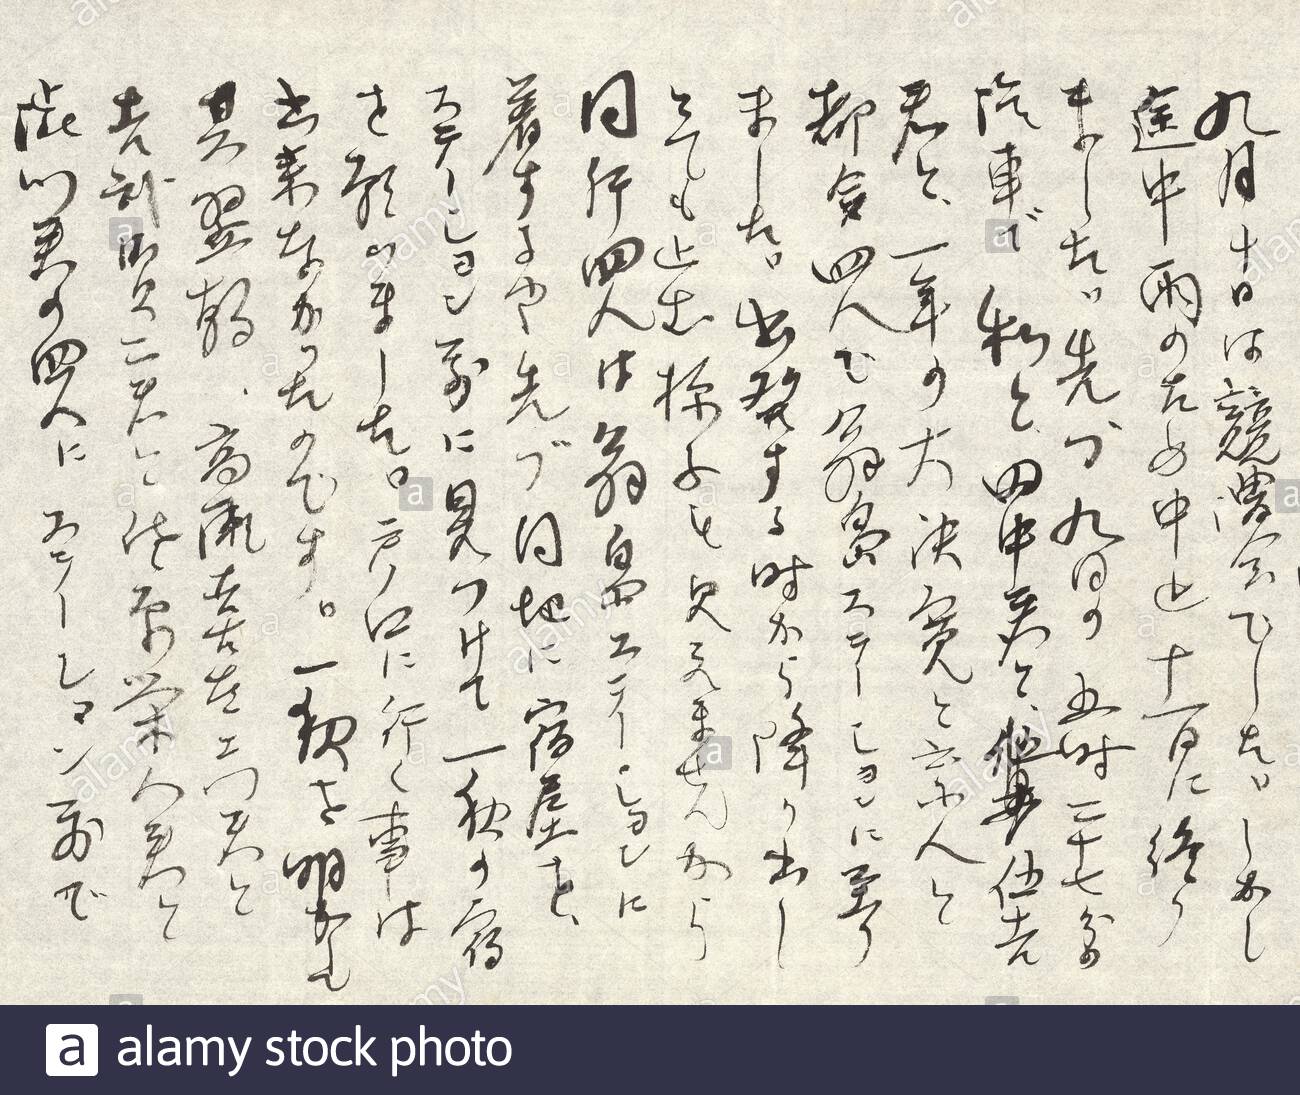 九月十日は競漕会でした。しかし
途中雨のため中止十一日に終り
ました。先づ九日の五時二十七分の
汽車で私と、田中君と、
君と、一年の大決
都合四人で翁島ステーションに至り
ました。出発する時から降り出し
とても止む様子も見えませんから
同行四人は翁島ステーションに
着するや先づ同地に宿屋を、
ステーション前に見つけて一秋の宿
を願いました。戸ノ口に行く事は
出来なかったのです。一秋を明かし
其翌朝、高瀬喜左エ門君と
二君と
君の四人にステーション前で
alamy stock photo